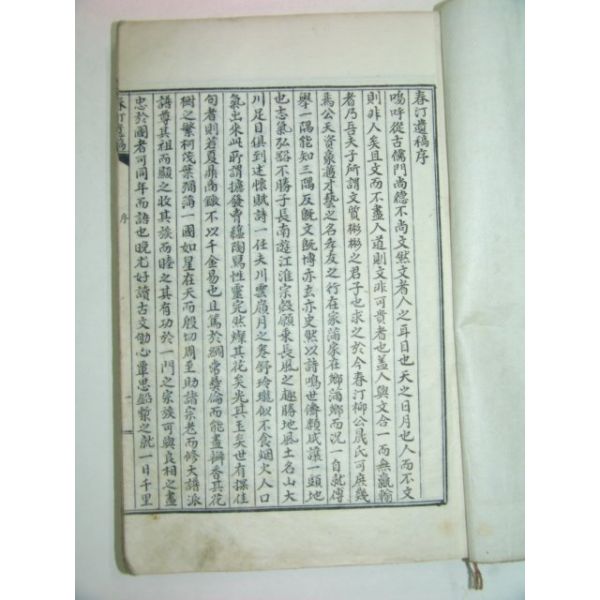 春汀遺稿序
嗚呼從古儒門尚德不尚文然文者人之耳目也天之日月也人而不文
則非人矣且文而不盡人道則文非可貴者也盖人與文合一而無羸輸
者乃吾夫子所謂文質彬彬之君子也求之於今春汀柳公晟氏可庶幾
焉公天資豪邁才藝之名孝友之行在家滿家在鄉滿鄉而況一自就傅
舉一隅能知三隅反旣文旣博亦玄亦史然以詩鳴世儕類咸讓一頭地
也志氣弘豁不勝子長南遊江淮宗慤願乘長風之趣勝地風土名山大
川足目俱到述懷賦詩一任夫川雲嶺月之卷舒玲瓏似不食烟火人口
氣出來此所謂擄發胷蘊陶寫性靈完然燦其花矣光其玉矣世有採佳
句者則若夏鼎商鏃不以千金易也且篤於綱常彜倫而能盡
樹之繁柯茂葉彌滿一國如星在天而殷切周至助諸宗老而修大譜派
譜尊其祖而顯之收其族而睦之其有功於一門之宗族可與良相之盡
忠於國者可同年而語也晚尤好讀古文劬心覃思鉛槧之就一日千里
春汀遺稿
序
二